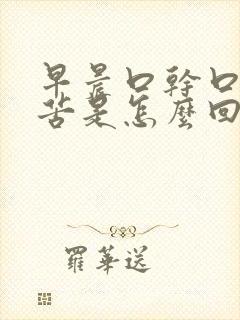 早晨口幹口
苦是怎麼回
羅華送